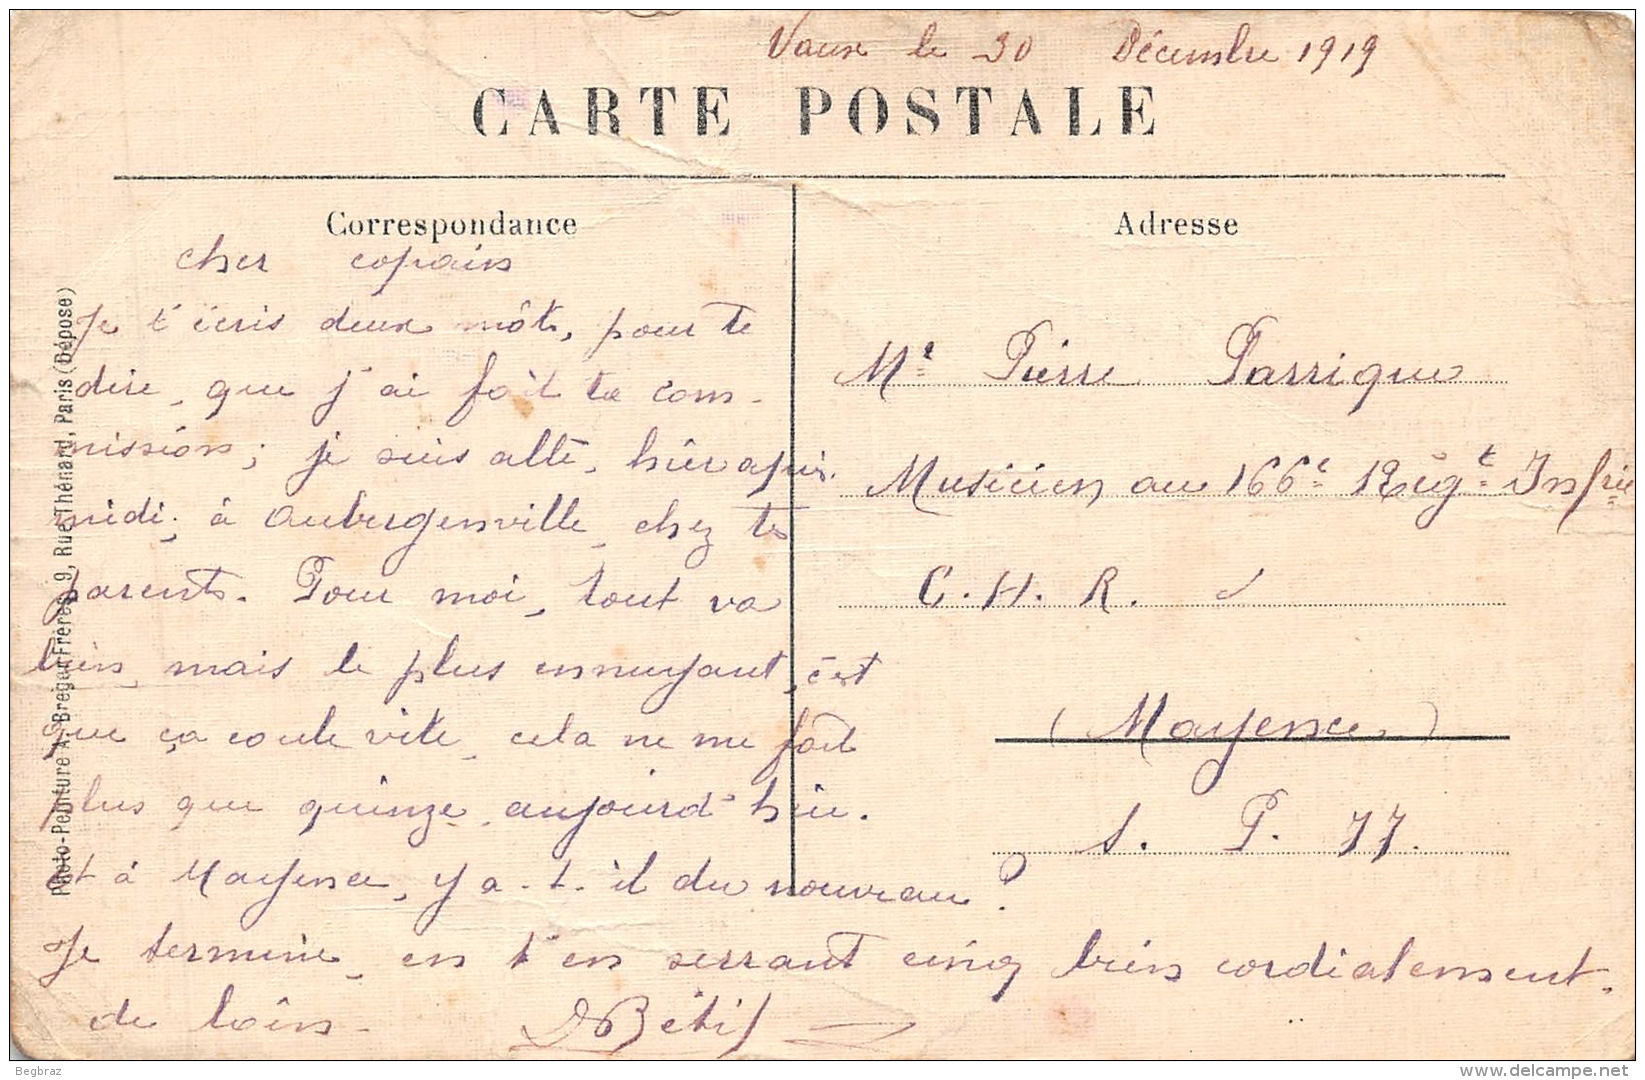 Vaux le 30 Décembre 1919
CARTE POSTALE
Correspondance
cher copain
Je t'écris deux môts, pour te
dire, que j'ai fait ta com-
mission; je suis allé, hier après.
midi, à Aubergenville, chez tes
parents. Pour moi, tout va
bien, mais le plus ennuyant, c'est
que ça coule vite, cela ne me fait
plus que quinze, aujourd'hui.
et à Mayence, y a-t-il du nouveau?
Je termine, en t'en serrant cinq bien cordialement.
de loin.
Bétif
Adresse
Mr Pierre Parrique
Musicien au 166e Régt Infrie
C. H. R.
(Mayence)
S. P. 77.
Photo-Peinture A. Breger Frères, 9, Rue Thénard, Paris (Déposé)
Begbraz
www.delcampe.net